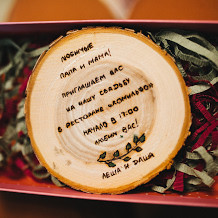 ЛЮБИМЫЕ
ПАПА И МАМА!
ПРИГЛАШАЕМ ВАС
НА НАШУ СВАДЬБУ
В РЕСТОРАНЕ
НАЧАЛО В 17:00
ЛЮБИМ ВАС!
ЛЁША И ДАША